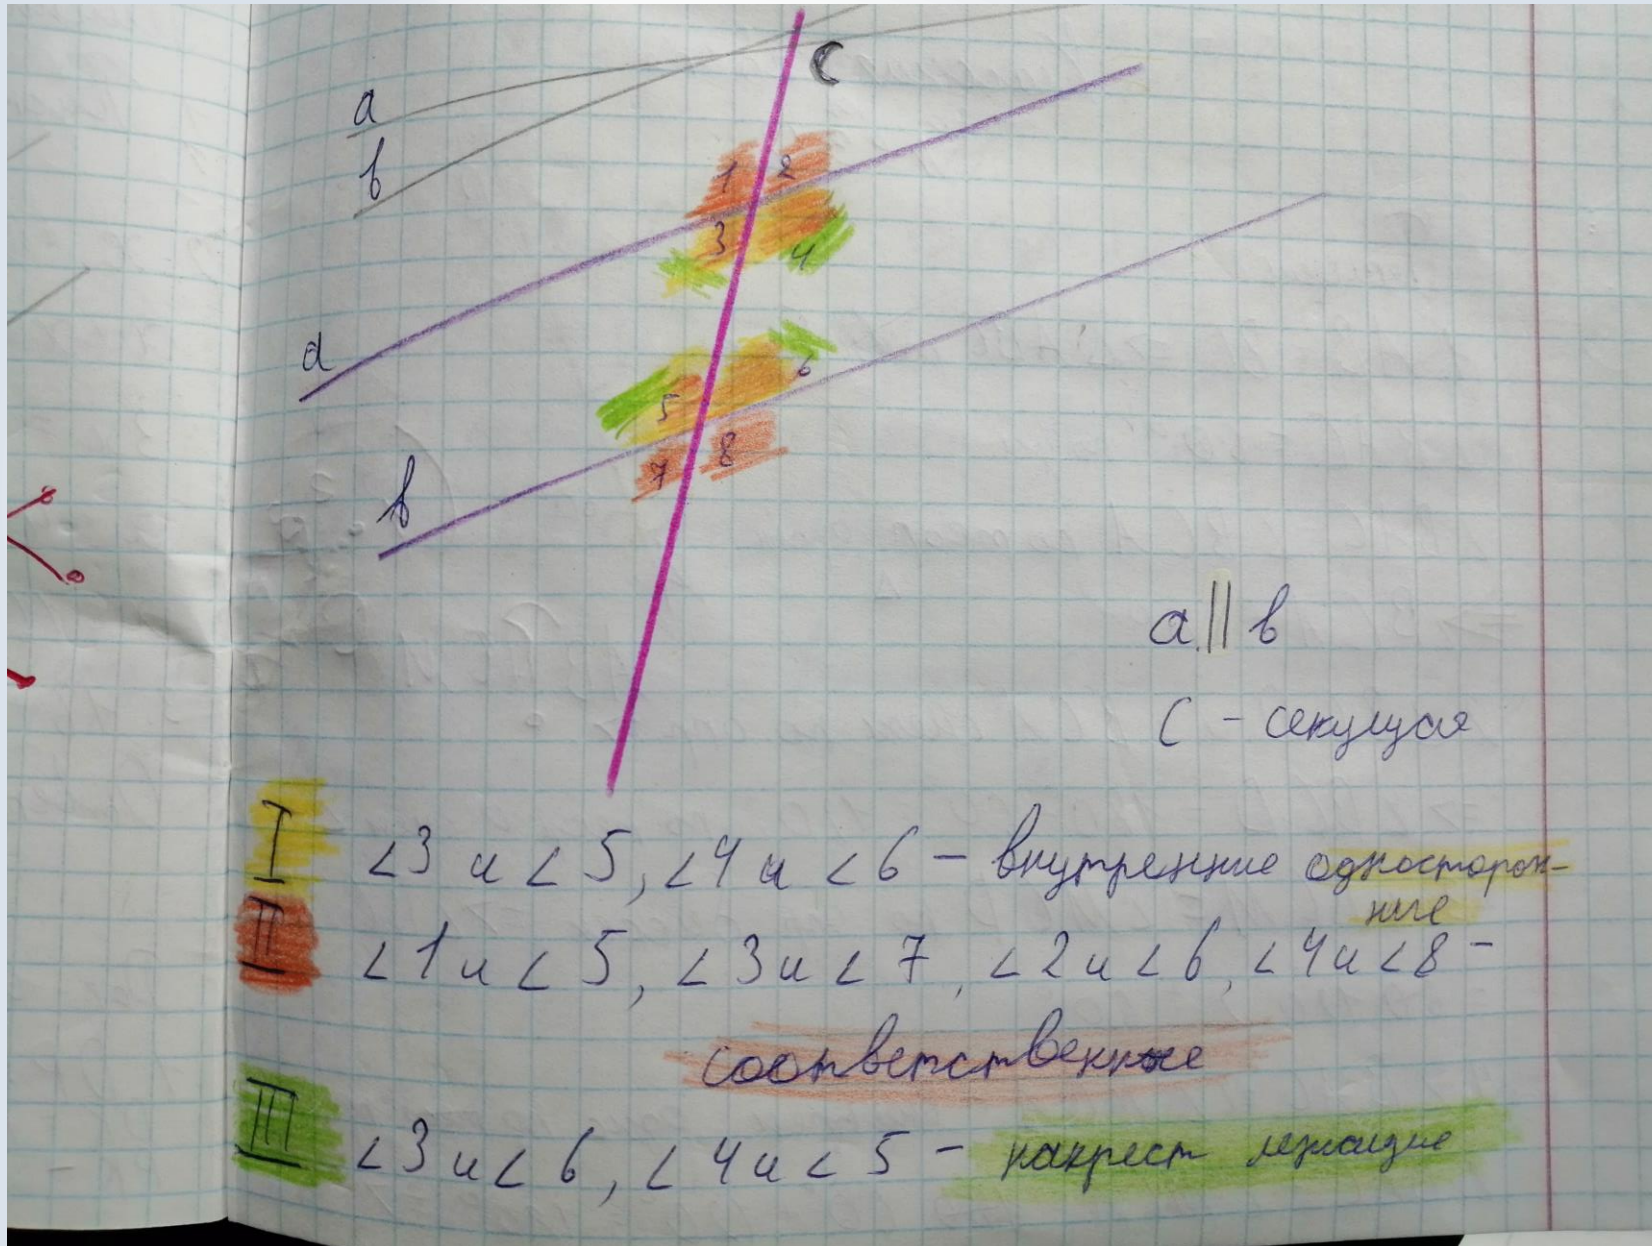 a
b
C
1 2
3
4
a
6
5
8
7
b
a || b
C - секущая
I <3 и <5, <4 и <6 – внутренние односторон-
ние
II <1 и <5, <3 и <7, <2 и <6, <4 и <8 –
соответственные
III <3 и <6, <4 и <5 – накрест лежащие